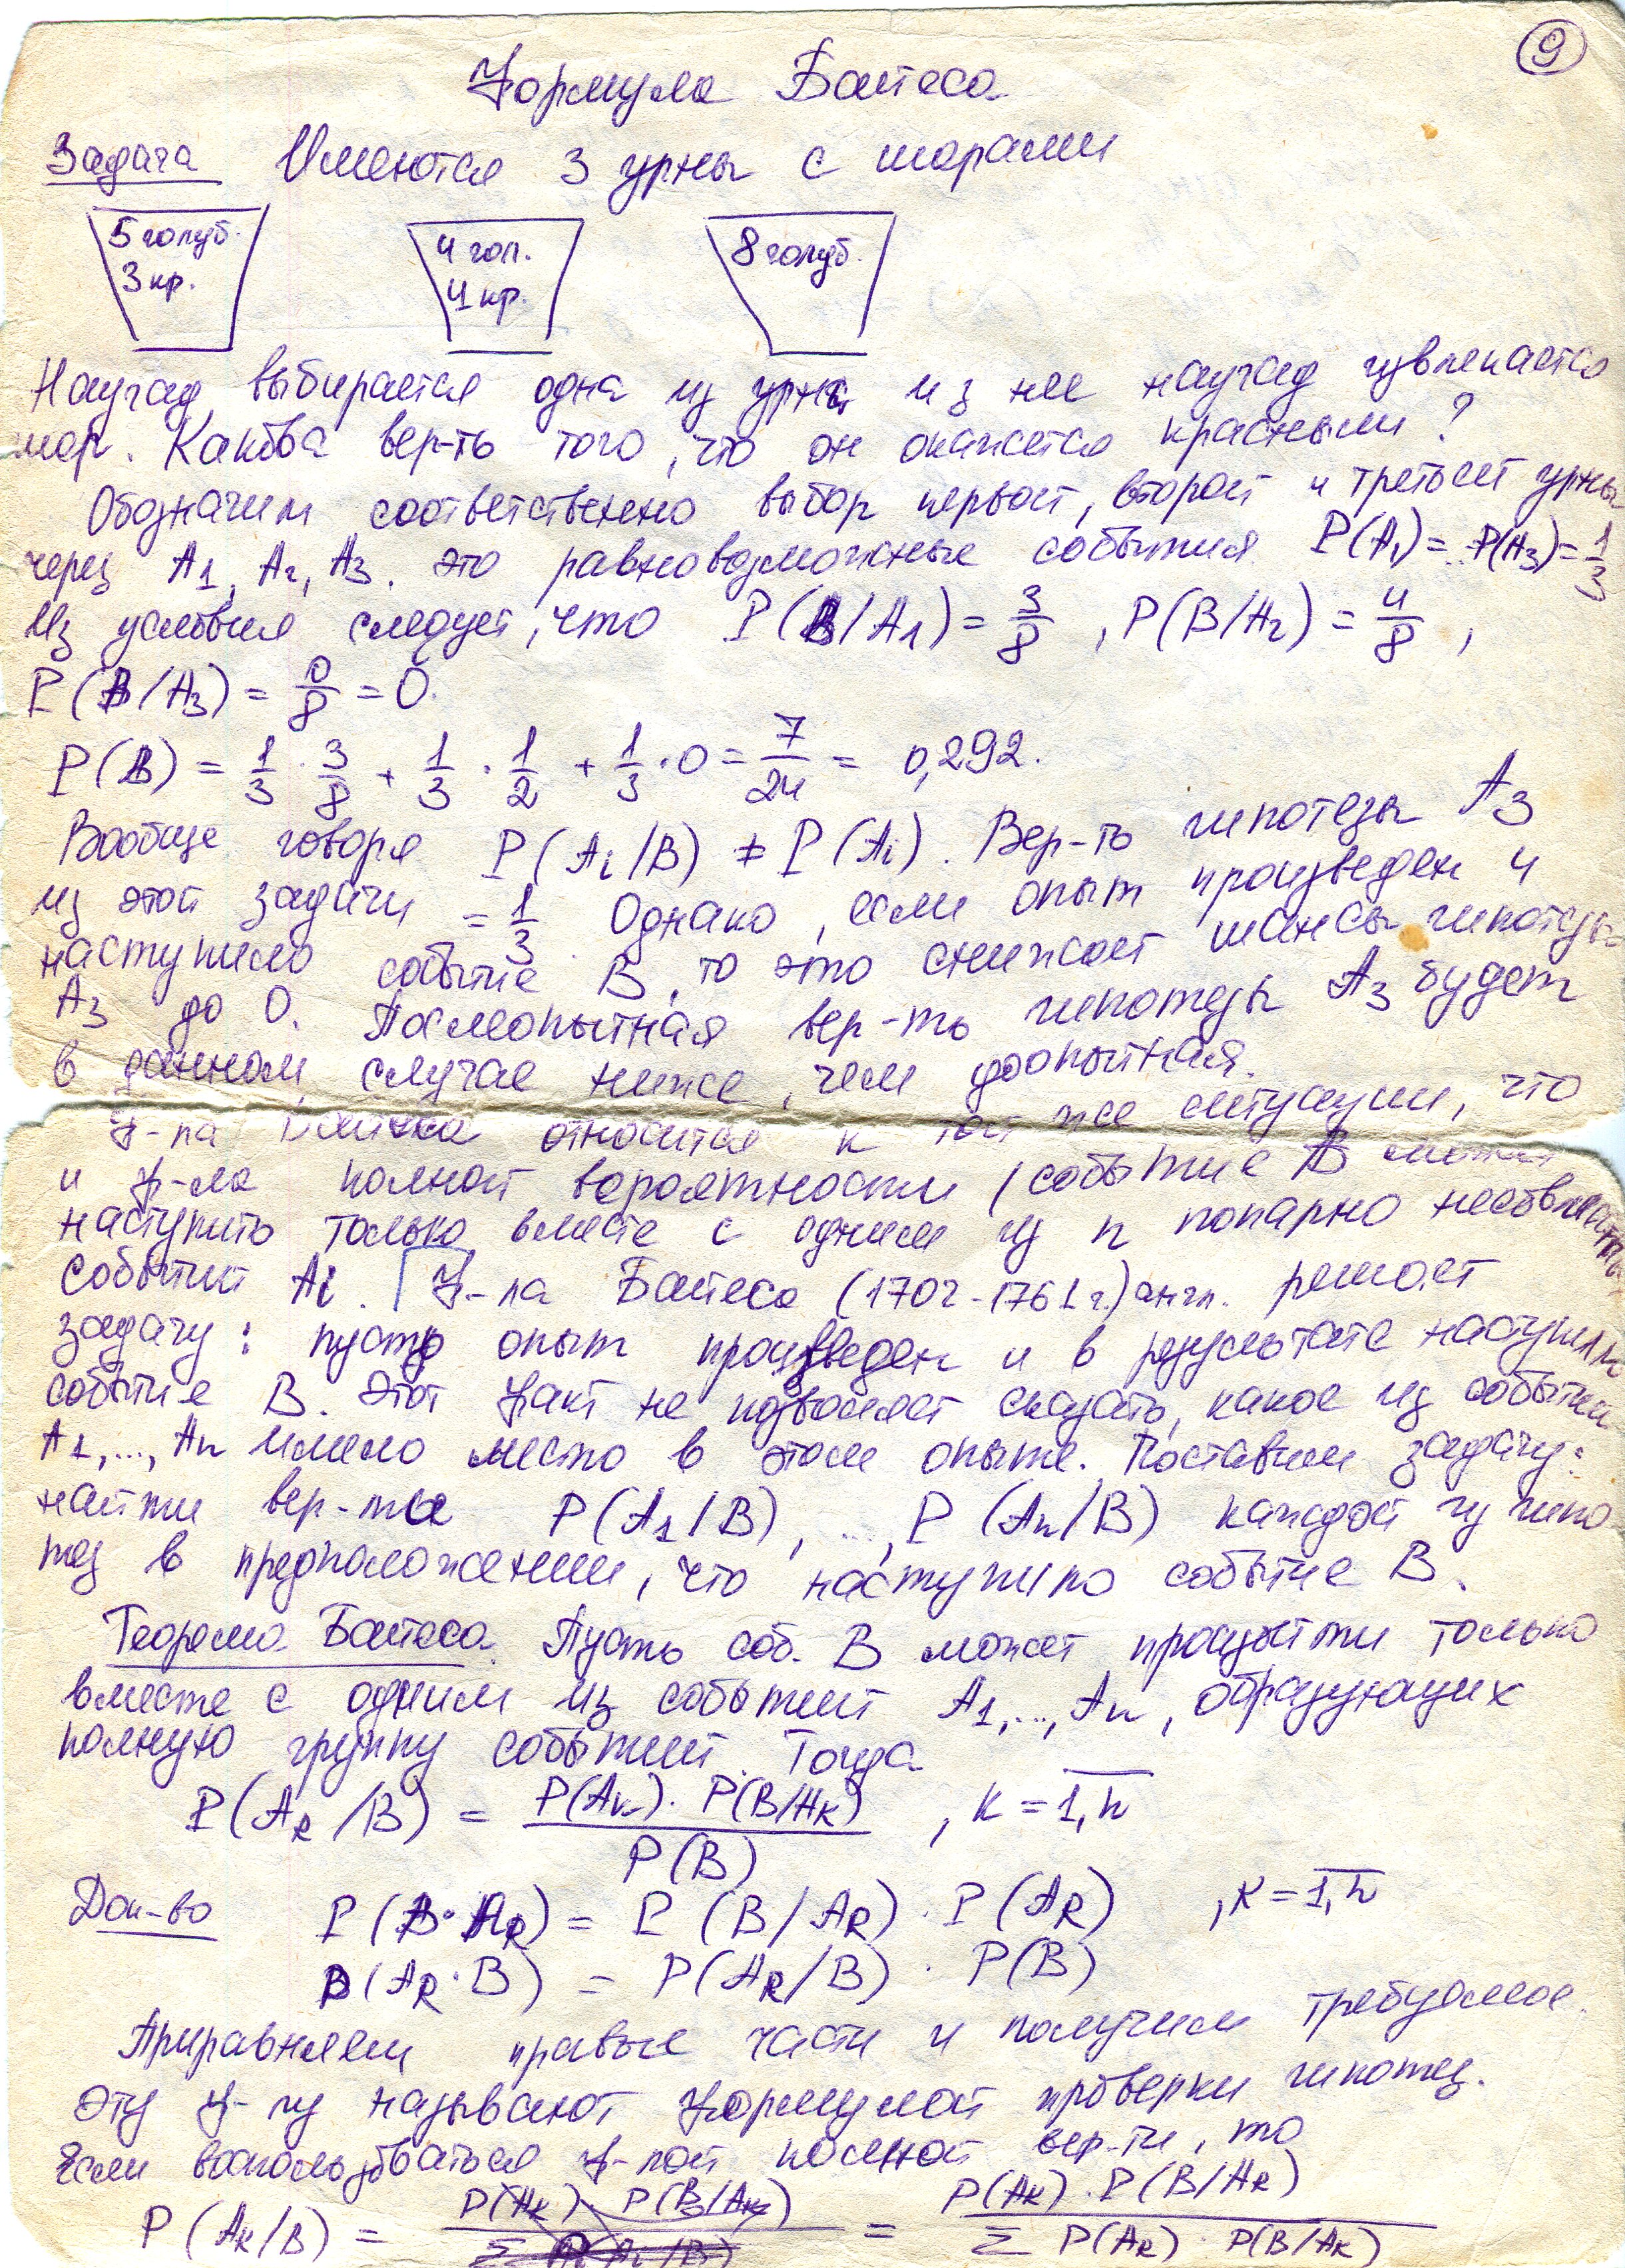 9
Формула Байеса
Задача Имеются 3 урны с шарами
5 голуб. 4 гол. 8 голуб.
3 кр. 4 кр.
Наугад выбирается одна из урн и из нее наугад извлекается
шар. Какова вер-ть того, что он окажется красным?
Обозначим соответственно выбор первой, второй и третьей урны
через A1, A2, A3. Это равновозможные события P(A1)=..P(A3)=1/3
Из условия следует, что P(B/A1) = 3/8, P(B/A2) = 4/8,
P(B/A3) = 0/8 = 0.
P(B) = 1/3 · 3/8 + 1/3 · 1/2 + 1/3 · 0 = 7/24 = 0,292.
Вообще говоря P(Ai/B) ≠ P(Ai). Вер-ть гипотезы A3
из этой задачи = 1/3 Однако, если опыт произведен и
наступило событие B, то это снижает шансы гипотезы
A3 до 0. Послеопытная вер-ть гипотезы A3 будет
в данном случае ниже, чем доопытная.
Ф-ла Байеса относится к той же ситуации, что
и ф-ла полной вероятности (событие B может
наступить только вместе с одним из n попарно несовместных
событий Ai. Ф-ла Байеса (1702-1761 г.) англ. решает
задачу: пусть опыт произведен и в результате наступило
событие B. Этот факт не позволяет сказать, какое из событий
A1,...,An имело место в этом опыте. Поставим задачу:
найти вер-ти P(A1/B), ..., P(An/B) каждой из гипо
тез в предположении, что наступило событие B.
Теорема Байеса. Пусть соб. B может произойти только
вместе с одним из событий A1,...,An, образующих
полную группу событий. Тогда
P(Ak/B) = P(Ak) · P(B/Ak) / P(B), k = 1,n
Док-во P(B·Ak) = P(B/Ak) · P(Ak), k = 1,n
P(Ak·B) = P(Ak/B) · P(B)
Приравняем правые части и получим требуемое.
Эту ф-лу называют формулой проверки гипотез.
Если воспользоваться ф-лой полной вер-ти, то
P(Ak/B) = = P(Ak) · P(B/Ak) / Σ P(Ak) · P(B/Ak)